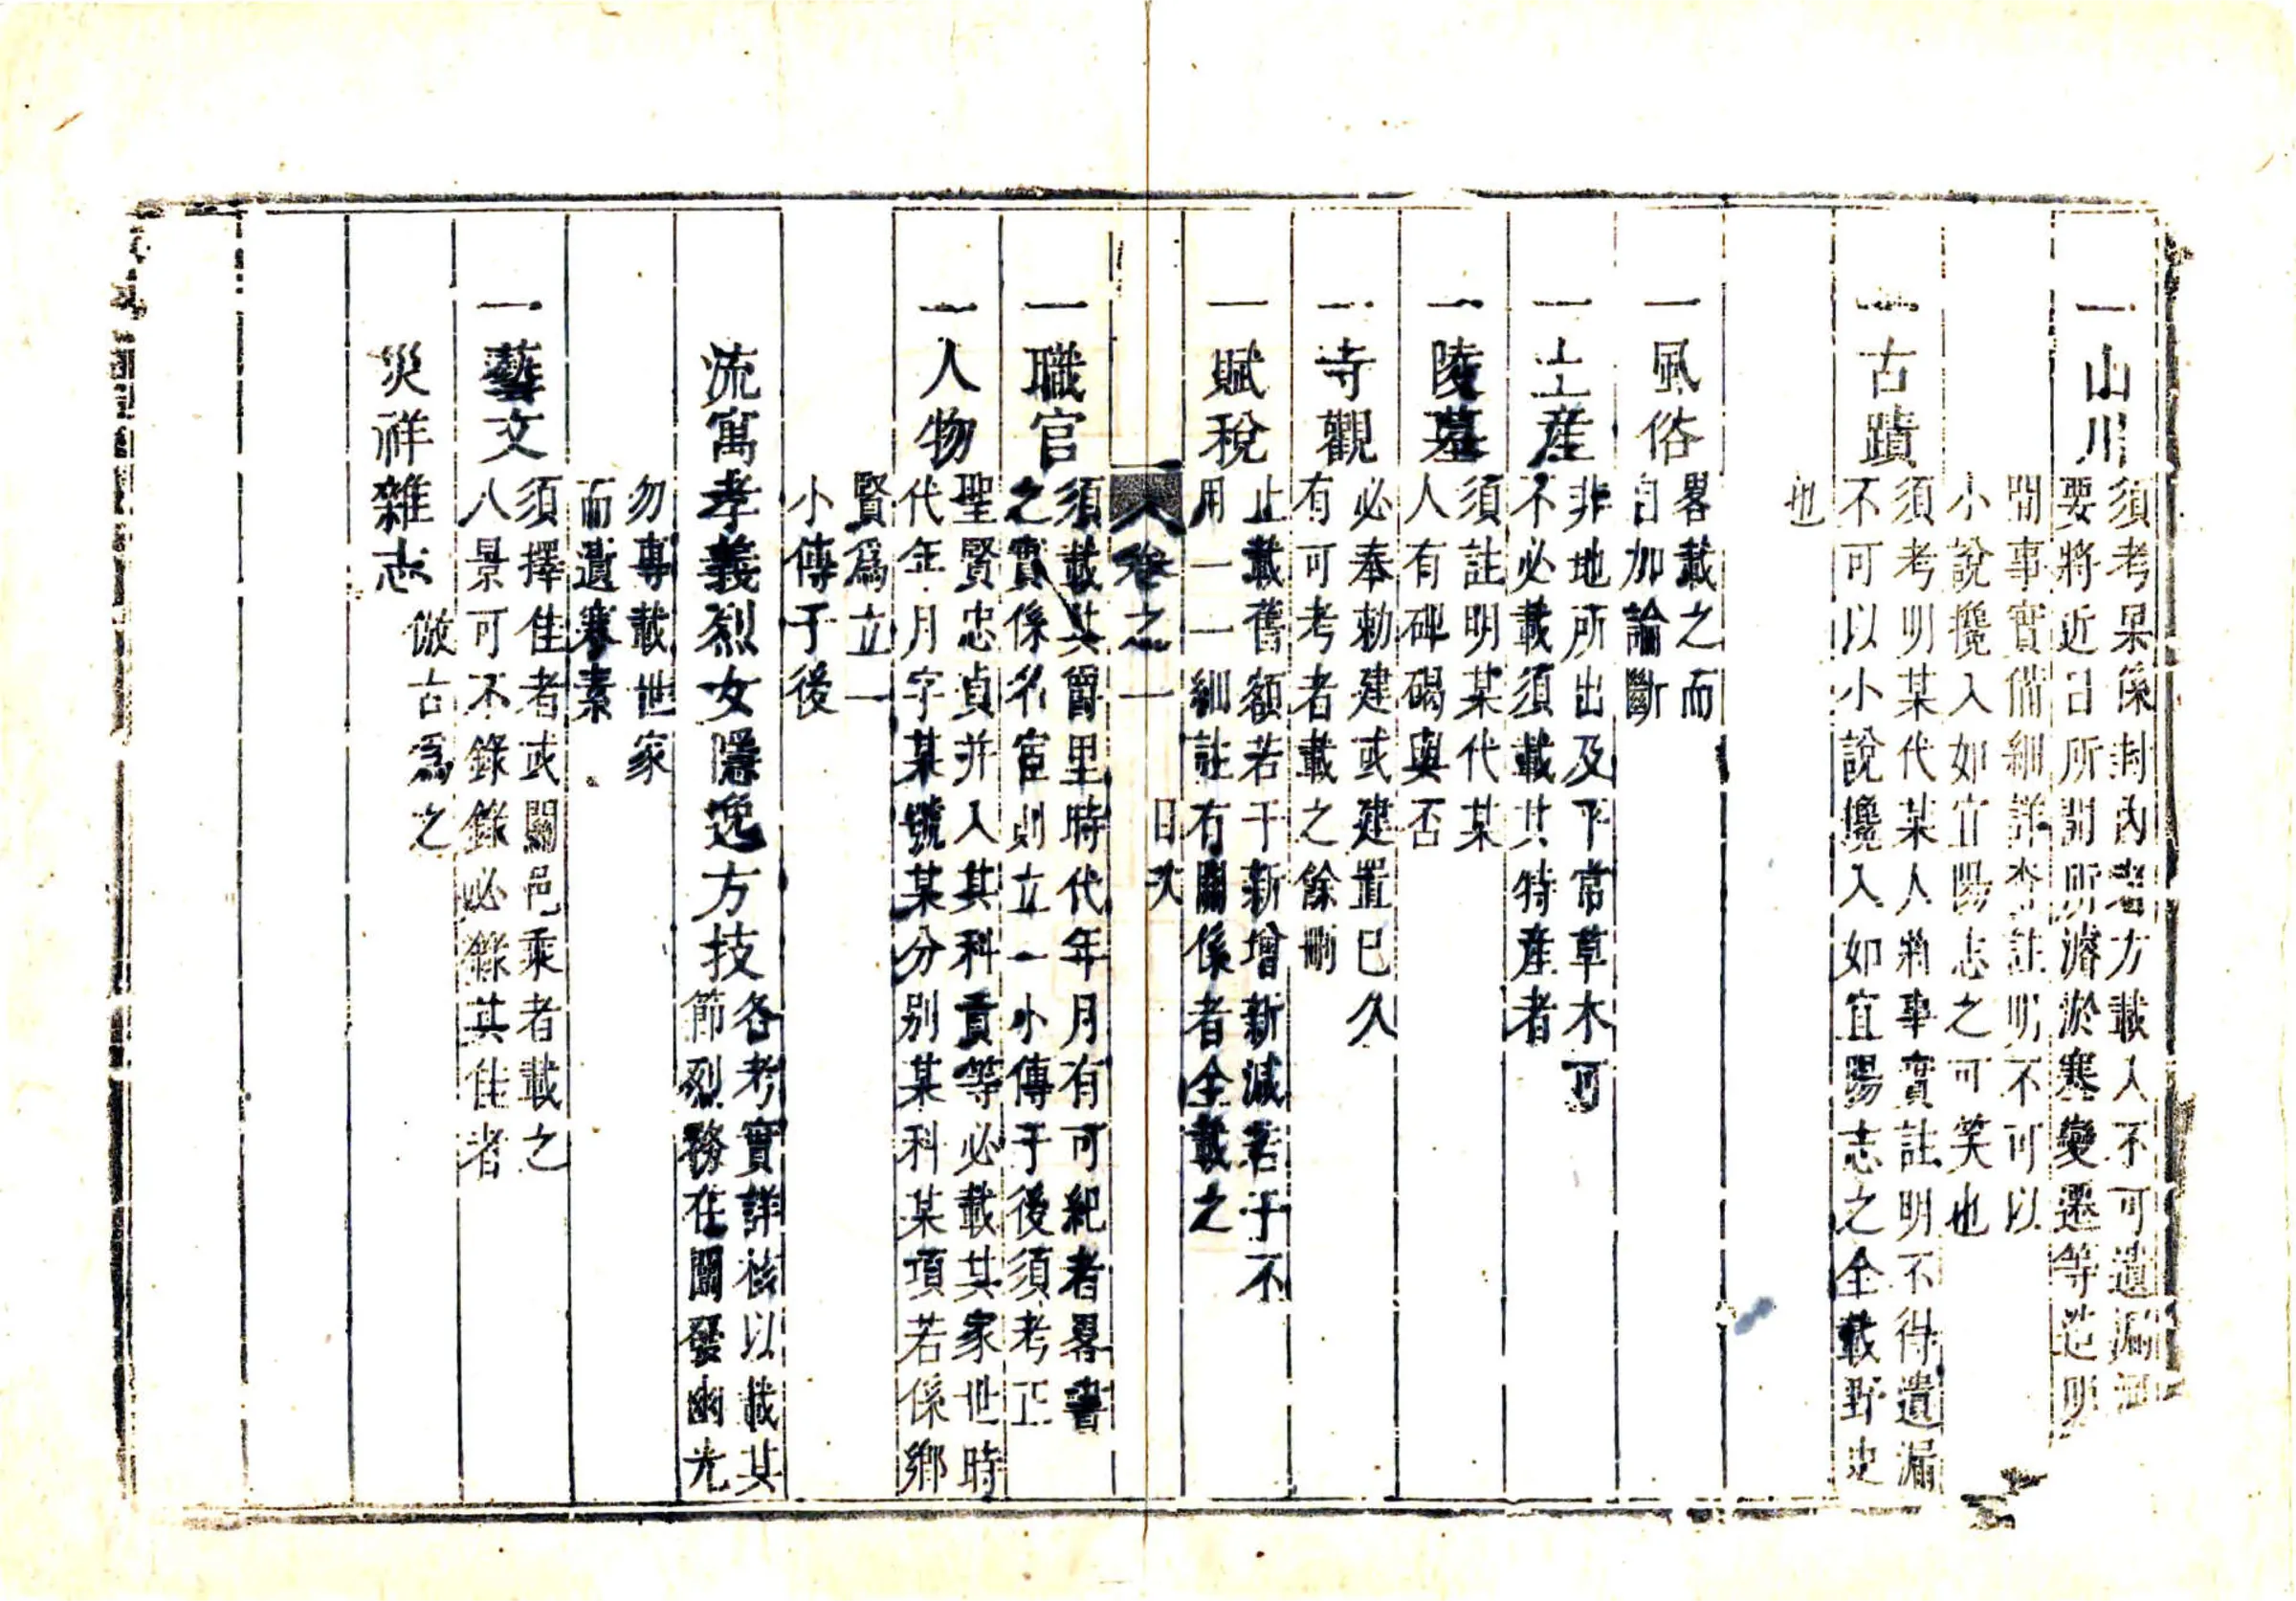 一山川
須考果係封內者方載入不可遺漏
要將近日所開所濬淤塞變遷等
間事實備細詳查註明不可以
小說攙入如宜陽志之可笑也
一古蹟
須考明某代某人將事實註明不得遺漏
不可以小說攙入如宜陽志之全載野史
也
一風俗
畧載之而
自加論斷
一土產
非地所出及下常草木可
不必載須載其特產者
一陵墓
須註明某代某
人有碑碣與否
一寺觀
必奉勅建或建置已久
有可考者載之餘刪
一賦稅
止載舊額若干新增新減若干不
用一一細註有關係者全載之
卷之一
目次
一職官
須載其爵里時代年月有可紀者畧書
之實係名宦則立一小傳于後須考正
一人物
聖賢忠貞並入其科貢等必載其家世時
代年月字某號某分別某科某項若係鄉
賢爲立一
小傳于後
流寓孝義烈女隱逸方技
各考實詳核以載其
節烈務在闡發幽光
勿專載世家
而遺寒素
一藝文
須擇佳者或關邑乘者載之
八景可不錄錄必錄其佳者
災祥雜志
倣古爲之